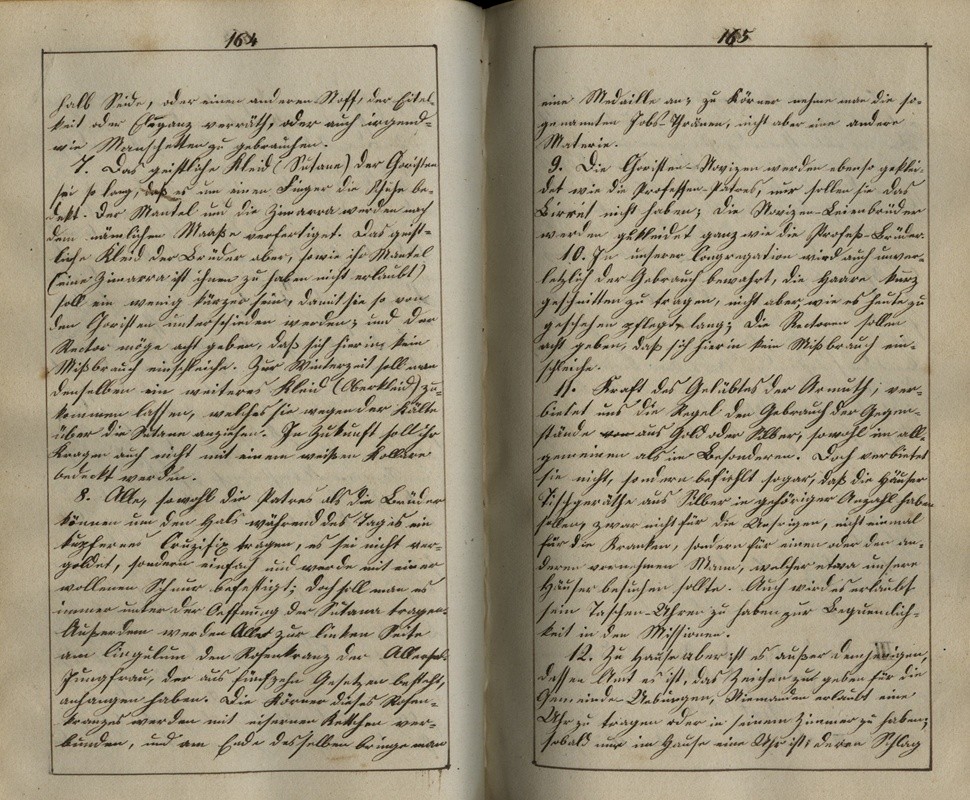 164
halb Seide, oder einen anderen Stoff, der Eitel-
keit oder Eleganz verräth, oder auch irgend-
wie Manschetten zu gebrauchen.
7. Das geistliche Kleid (Sutane) der Choristen
sei so lang, daß es um einen Finger die Schuhe be-
deckt. Der Mantel und die Zimarra werden nach
dem nämlichen Maaße verfertiget. Das geist-
liche Kleid der Brüder aber, sowie ihr Mantel
(eine Zimarra ist ihnen zu haben nicht erlaubt)
soll ein wenig kürzer sein, damit sie so von
den Choristen unterschieden werden; und der
Rector möge acht geben, daß sich hierin kein
Mißbrauch einschleiche. Zur Winterszeit soll man
denselben ein weiteres Kleid (Oberkleid) zu-
kommen lassen, welches sie wegen der Kälte
über die Sutane anziehen. In Zukunft soll ihr
Kragen auch nicht mit einem weißen Kollare
bedeckt werden.
8. Alle, sowohl die Patres als die Brüder
können um den Hals während des Tages ein
kupfernes Cruzifix tragen, es sei nicht ver-
goldet, sondern einfach und werde mit einer
wollenen Schnur befestigt; doch soll man es
immer unter der Oeffnung der Sutana tragen.
Außerdem werden Alle zur linken Seite
am Cingulum den Rosenkranz der Allersel.
Jungfrau, der aus fünfzehn Gesetzen besteht,
anhangen haben. Die Körner dieses Rosen-
kranzes werden mit eisernen Kettchen ver-
bunden, und am Ende desselben bringe man
165
eine Medaille an; zu Körner nehme man die so-
genannten Jobs-Thränen, nicht aber eine andere
Materie.
9. Die Choristen-Novizen werden ebenso geklei-
det wie die Professen-Patres, nur sollen sie das
Birret nicht haben; die Novizen-Leienbrüder
werden gekleidet ganz wie die Profeß-Brüder.
10. In unserer Congregation wird auch unver-
letzlich der Gebrauch bewahrt, die Haare kurz
geschnitten zu tragen, nicht aber, wie es heute zu
geschehen pflegt, lang; die Rectoren sollen
acht geben, daß sich hierin kein Mißbrauch ein-
schleiche.
11. Kraft des Gelübtes der Armuth, ver-
bietet uns die Regel den Gebrauch der Gegen-
stände von aus Gold oder Silber, sowohl im all-
gemeinen als im Besonderen. Doch verbietet
sie nicht, sondern befiehlt sogar, daß die Häuser
Tischgeräthe aus Silber in gehöriger Anzahl haben
sollen, zwar nicht für die Unsrigen, nicht einmal
für die Kranken, sondern für einen oder den an-
deren vornehmen Mann, welcher etwa unsere
Häuser besuchen sollte. Auch wird es erlaubt
sein Taschen-Uhren zu haben zur Bequemlich-
keit in den Missionen.
12. Zu Hause aber ist es außer demjenigen,
dessen Amt es ist, das Zeichen zu geben für die
Gemeinde-Uebungen, Niemanden erlaubt eine
Uhr zu tragen oder in seinem Zimmer zu haben;
sobald nur im Hause eine Uhr ist, deren Schlag